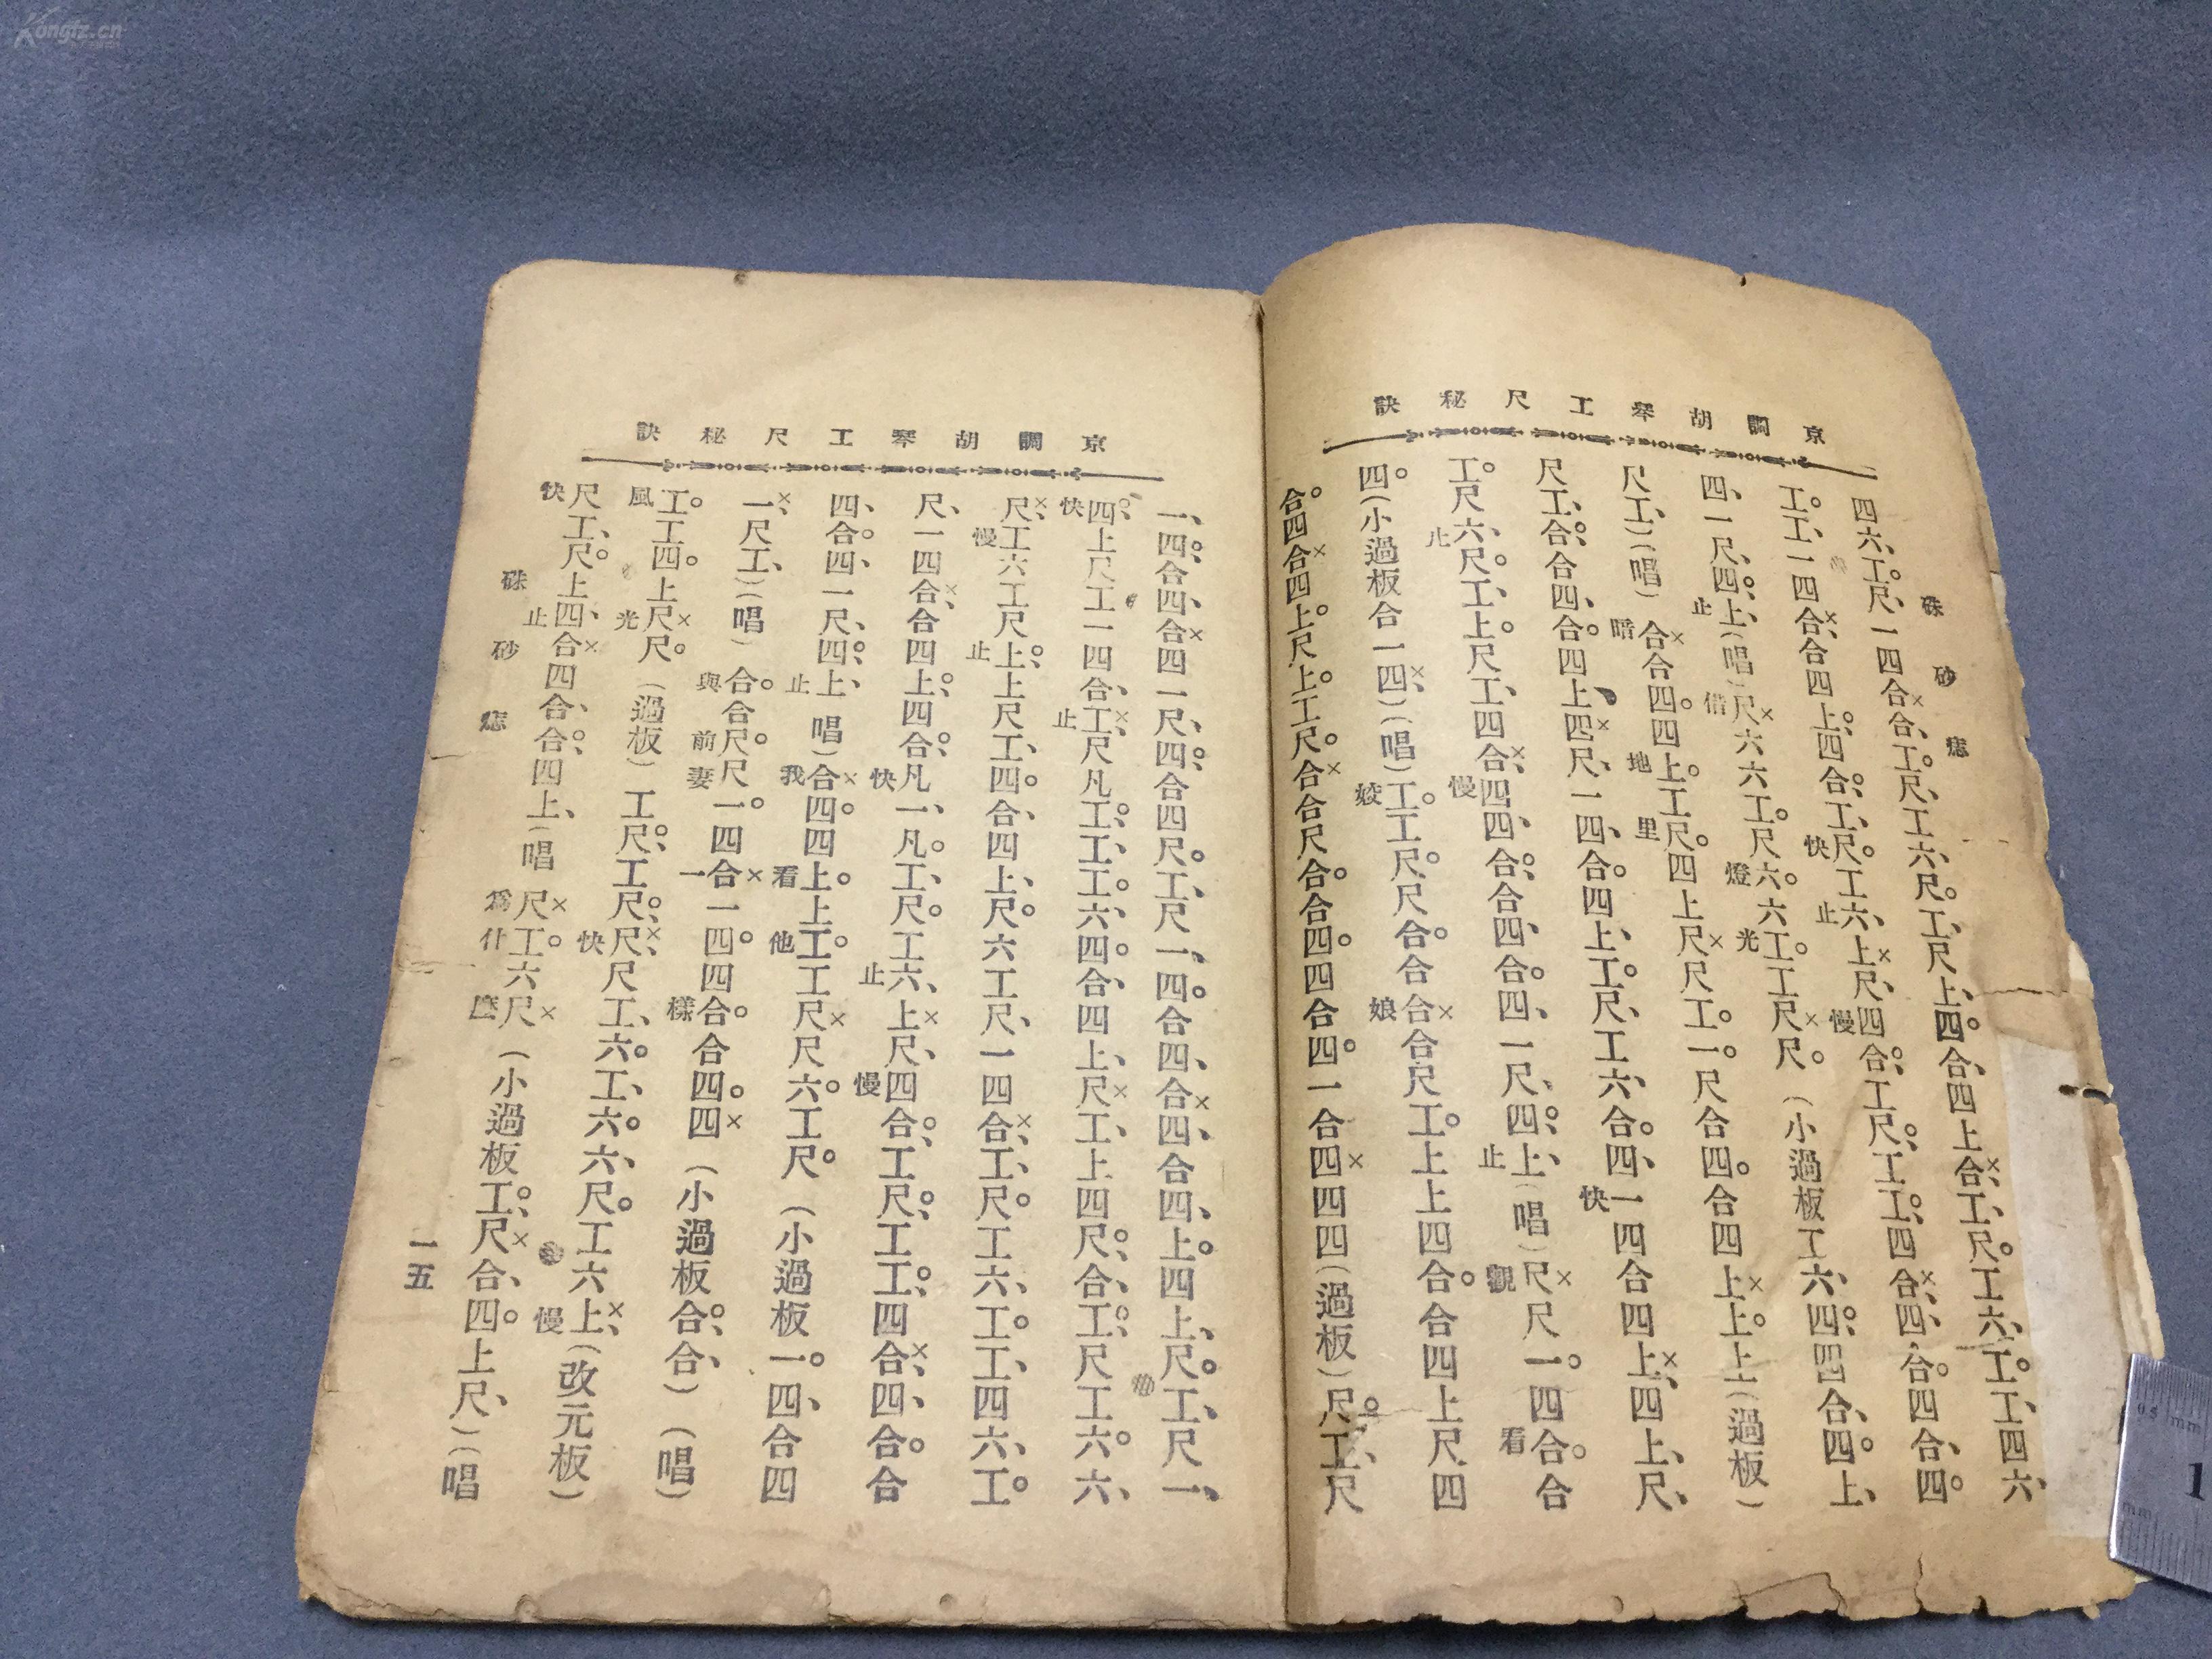 京調胡琴工尺秘訣
硃砂痣
四六、工。尺、一四合×合、工。尺、工六、尺。工、尺上、四。合、四上合×、工、尺。工六、工。工、四六、
工。工、一四合×、合四上。四合。、工、尺。工六、上×尺、四合。、工尺。、工工。、四合×、四、合。四合、四。
快止慢
四、一尺、四。、上、(唱)尺×六六工。尺六。六工。工尺×尺。(小過板工六、四。、四合、四。上、
止借燈光
尺工、)(唱)合×合四。四上。工尺。四上尺×尺工。一。尺合四。合四上×上。上(過板)
暗地里
尺工、。合四、合。四上、四×尺、一四、合。四上、工。尺、工六、合。四、一四合四上×、四上、尺、
快
工。尺六、尺。工、上。尺工、四合×、四四、合。、合四、合。四、一尺、四。、上、(唱)尺×尺一。四合。合
止慢止觀看
四。(小過板合一四×、)(唱)工。工尺。尺合。合合×合尺工。上上四合。合四上尺四
姣娘
合。四合×四上。尺上。工尺。合×合尺合。合四。四合四。一合四×四四(過板)尺。工、尺
京調胡琴工尺秘訣
一、四。、合四、合×四一尺、四。、合四尺。工、尺一、四。合四、合×四、合四、上。四上、尺。工、尺一、
四。、上尺工一四合、工×、尺凡工。、工、工。六、四。合、四上、尺×工、上四尺。、合、工。、尺工六。六、
快止
尺×、工六工尺上。、上尺工、四。合、四上、尺。六工尺、一四合×、工、尺。工六、工。工、四六、工。
慢止
尺、一四合×、合四上。、四合。、凡一、凡。工、尺。工六、上×尺、四合。、工尺。、工工。、四合×、四、合。合
快止慢
四、合。四、一尺、四。、上、唱)合×四。四上。上工。工尺×尺六。工尺。(小過板一。四、合四
止我看他
一×、尺工、)(唱)合。合尺。尺一。四合×一四。四合。合四。四×(小過板合。、合、)(唱)
與前妻一樣
工。工四。上尺×尺。(過板)工尺。、工尺。、尺×、尺工、六。工、六。六、尺。工六上×、(改元板)
風光快慢
尺工、尺。上四、合×四合、合。、四上、(唱尺×工。六尺×(小過板工。、尺×合、四。上尺、)(唱
快止爲什麽
硃砂痣
一五